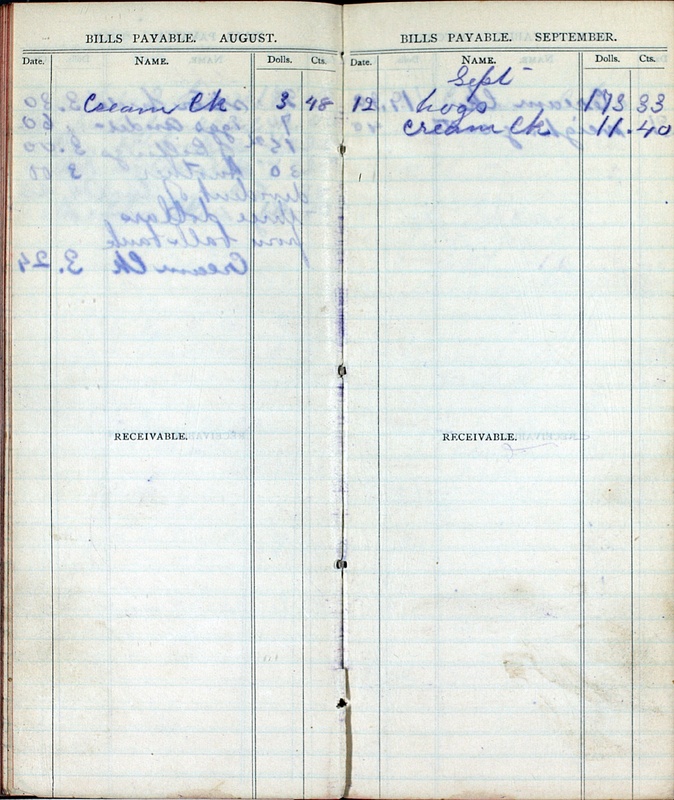 BILLS PAYABLE. AUGUST.
Date. NAME. Dolls. Cts.
Cream Ck 3 48
RECEIVABLE.
BILLS PAYABLE. SEPTEMBER.
Date. NAME. Dolls. Cts.
Sept
12 hogs 173 33
Cream Ck 11.40
RECEIVABLE.